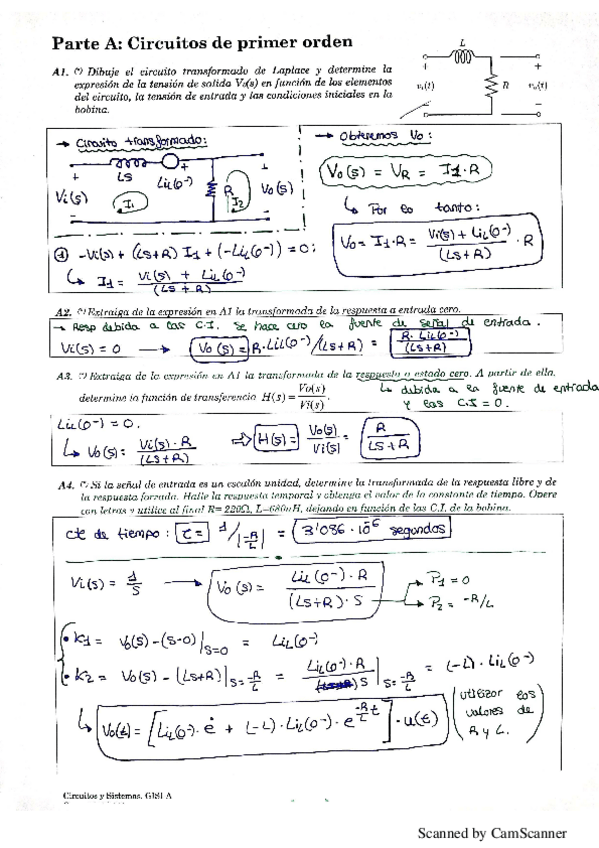 Parte A: Circuitos de primer orden
A1. (*) Dibuje el circuito transformado de Laplace y determine la
expresión de la tensión de salida Vo(s) en función de los elementos
del circuito, la tensión de entrada y las condiciones iniciales en la
bobina.
L
+
vi(t)
R
+
vo(t)
→ Circuito transformado:
+
LS
LiL(0⁻)
+
+
Vi(s)
I1
R
I2
Vo(s)
-
-
① -Vi(s) + (LS+R) I1 + (-LiL(0⁻)) = 0;
↳ I1 = Vi(s) + LiL(0⁻) / (LS+R)
→ Obtenemos Vo:
Vo(s) = VR = I1·R
↳ Por lo tanto:
Vo = I1·R = Vi(s) + LiL(0⁻) / (LS+R) · R
A2. (*) Extraiga de la expresión en A1 la transformada de la respuesta a entrada cero.
→ Resp debida a las C.I. Se hace cero la fuente de señal de entrada.
Vi(s) = 0 → Vo(s) = R·LiL(0⁻)/(LS+R) = R·LiL(0⁻) / (LS+R)
A3. (*) Extraiga de la expresión en A1 la transformada de la respuesta a estado cero. A partir de ella,
determine la función de transferencia H(s) = Vo(s) / Vi(s).
↳ debida a la fuente de entrada
y las C.I = 0.
LiL(0⁻) = 0.
↳ Vo(s) = Vi(s)·R / (LS+R) ⇒ H(s) = Vo(s) / Vi(s) = R / LS+R
A4. (*) Si la señal de entrada es un escalón unidad, determine la transformada de la respuesta libre y de
la respuesta forzada. Halle la respuesta temporal y obtenga el valor de la constante de tiempo. Opere
con letras y utilice al final R= 220Ω, L=680uH, dejando en función de las C.I. de la bobina.
cte de tiempo: τ = 1/|-R/L| = 3'086 · 10⁻⁶ segundos
Vi(s) = 1/S → Vo(s) = LiL(0⁻)·R / (LS+R)·S
→ P1 = 0
→ P2 = -R/L
• K1 = Vo(S) - (S-0)|S=0 = LiL(0⁻)
• K2 = Vo(S) - (LS+R)|S=-R/L = LiL(0⁻)·R / S |S=-R/L = (-L)·LiL(0⁻)
↳ Vo(t) = [LiL(0⁻)·e⁰ + (-L)·LiL(0⁻)·e^(-R/L t)]·u(t)
(utilizar los
valores de
R y L.)
Circuitos y Sistemas. GISI A
Scanned by CamScanner